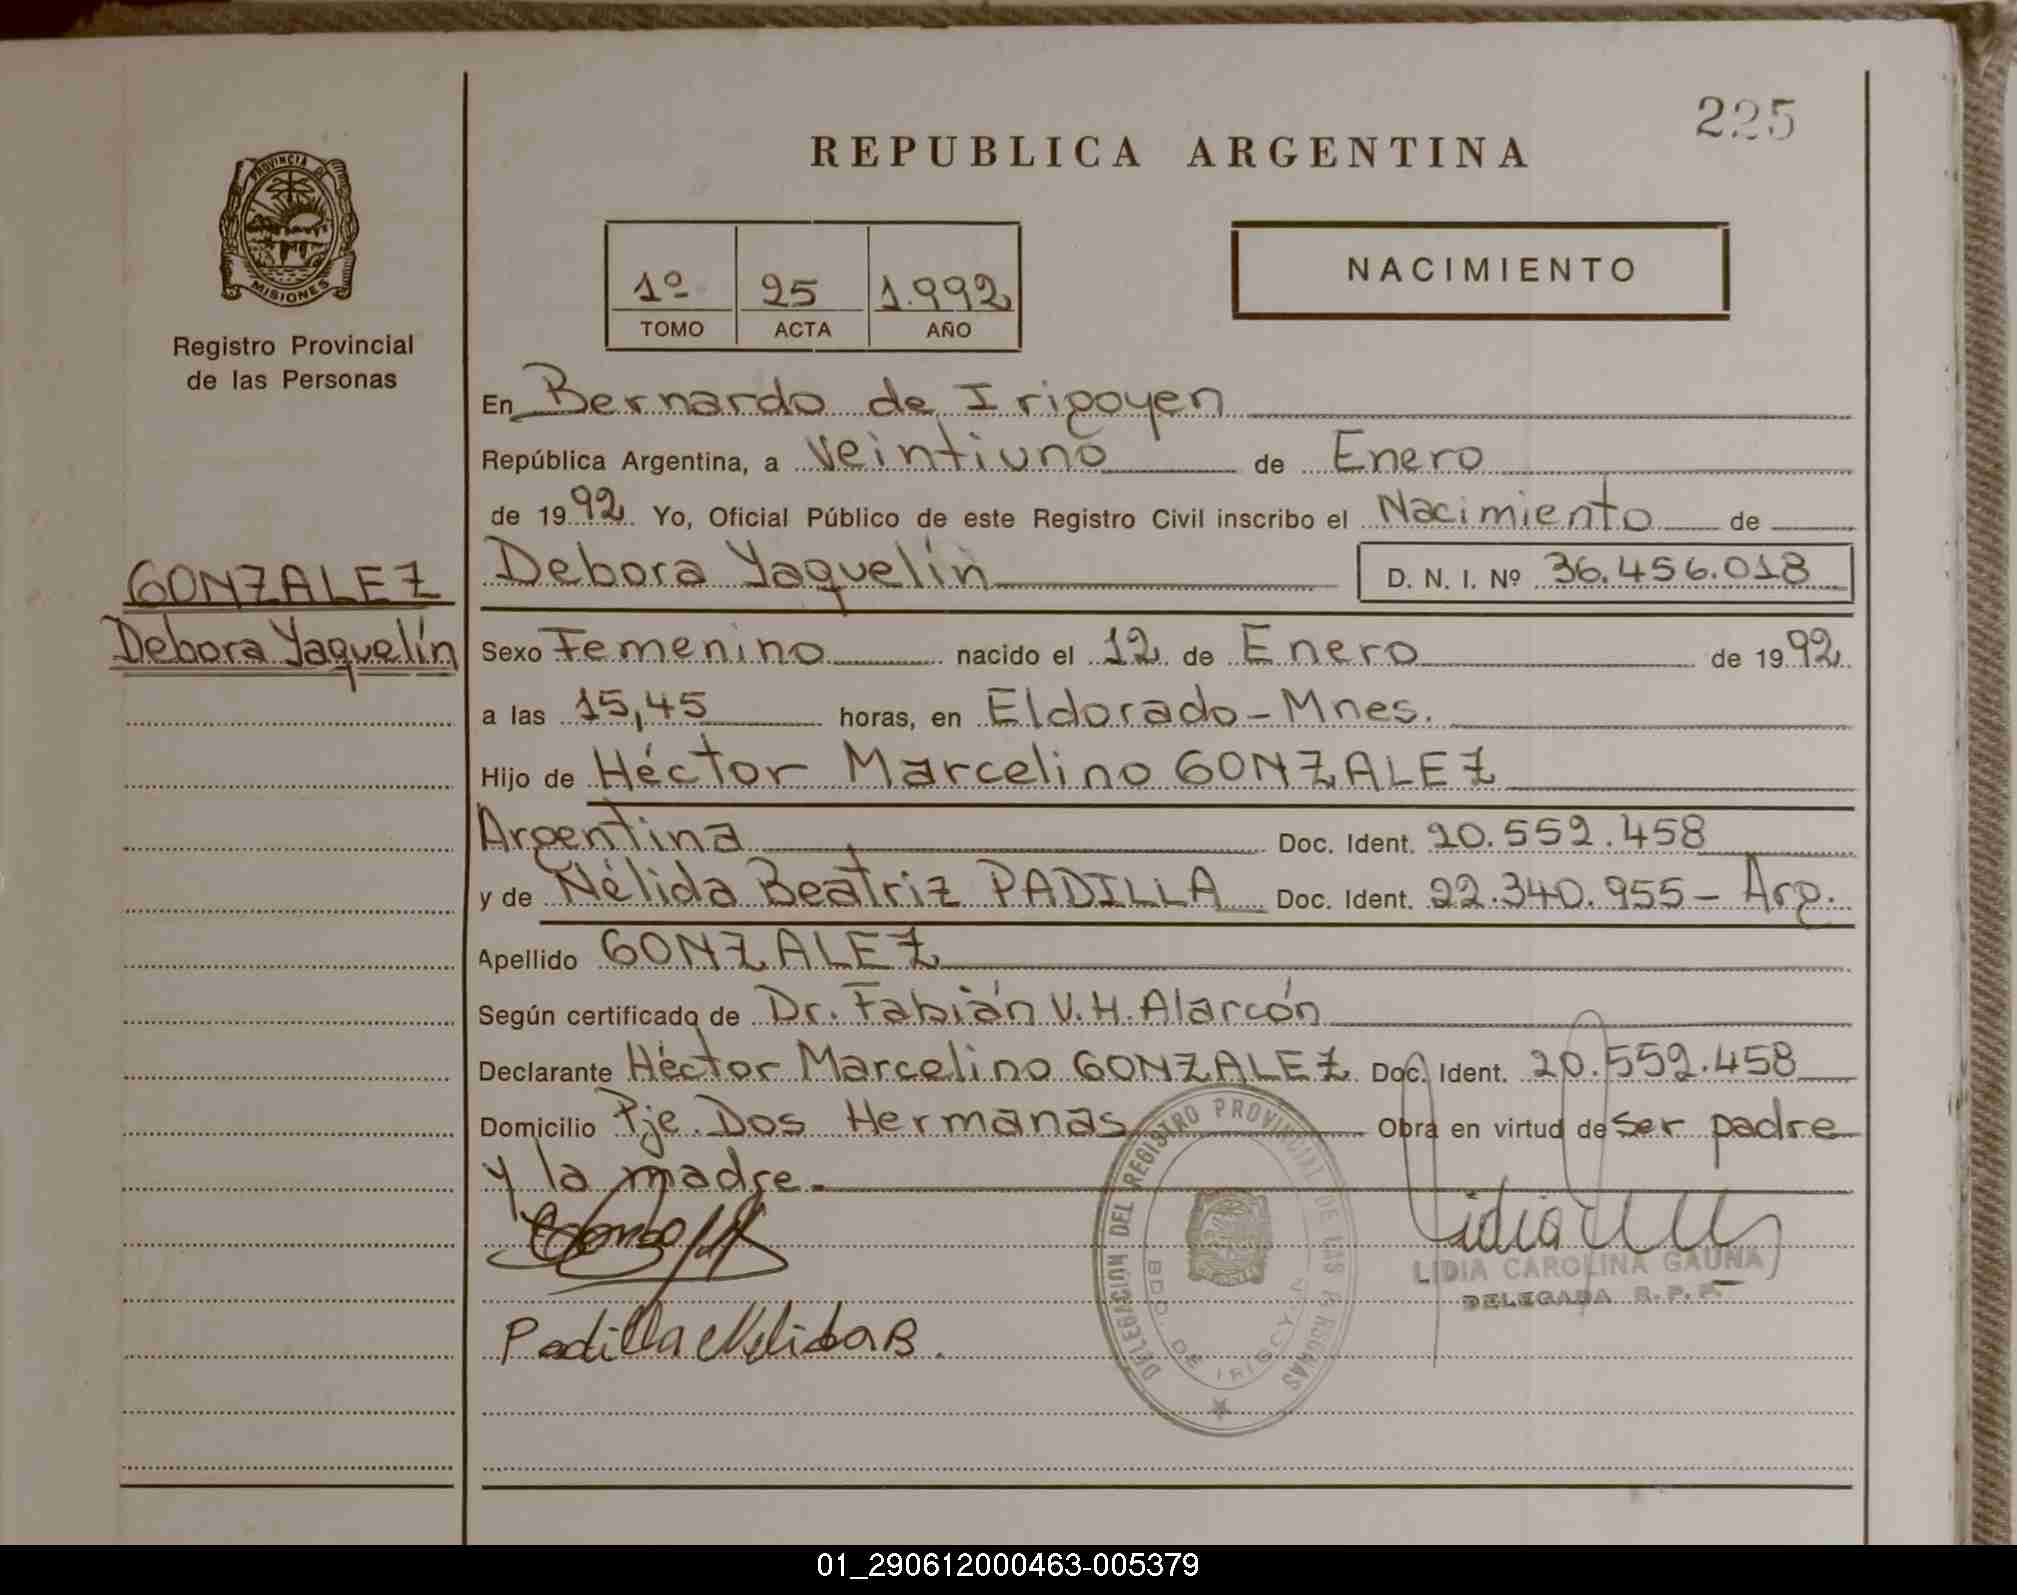 225
REPUBLICA ARGENTINA
PROVINCIA DE
MISIONES
Registro Provincial
de las Personas
NACIMIENTO
1º 25 1.992
TOMO ACTA AÑO
En Bernardo de Irigoyen
República Argentina, a Veintiuno de Enero
de 1992 Yo, Oficial Público de este Registro Civil inscribo el Nacimiento de
GONZALEZ
Debora Yaquelín
Debora Yaquelín D. N. I. Nº 36.456.018
Sexo Femenino nacido el 12 de Enero de 1992
a las 15,45 horas, en Eldorado-Mnes.
Hijo de Héctor Marcelino GONZALEZ
Argentina Doc. Ident. 20.552.458
y de Nélida Beatriz PADILLA Doc. Ident. 22.340.955- Arg.
Apellido GONZALEZ
Según certificado de Dr. Fabián V.H. Alarcón
Declarante Héctor Marcelino GONZALEZ Doc. Ident. 20.552.458
Domicilio Pje. Dos Hermanas Obra en virtud de ser padre
y la madre.
DELEGACIÓN DEL REGISTRO PROVINCIAL DE LAS PERSONAS
BDO. DE IRIGOYEN
LIDIA CAROLINA GAUNA
DELEGADA R.P.P.
Padilla Nelida B.
01_290612000463-005379